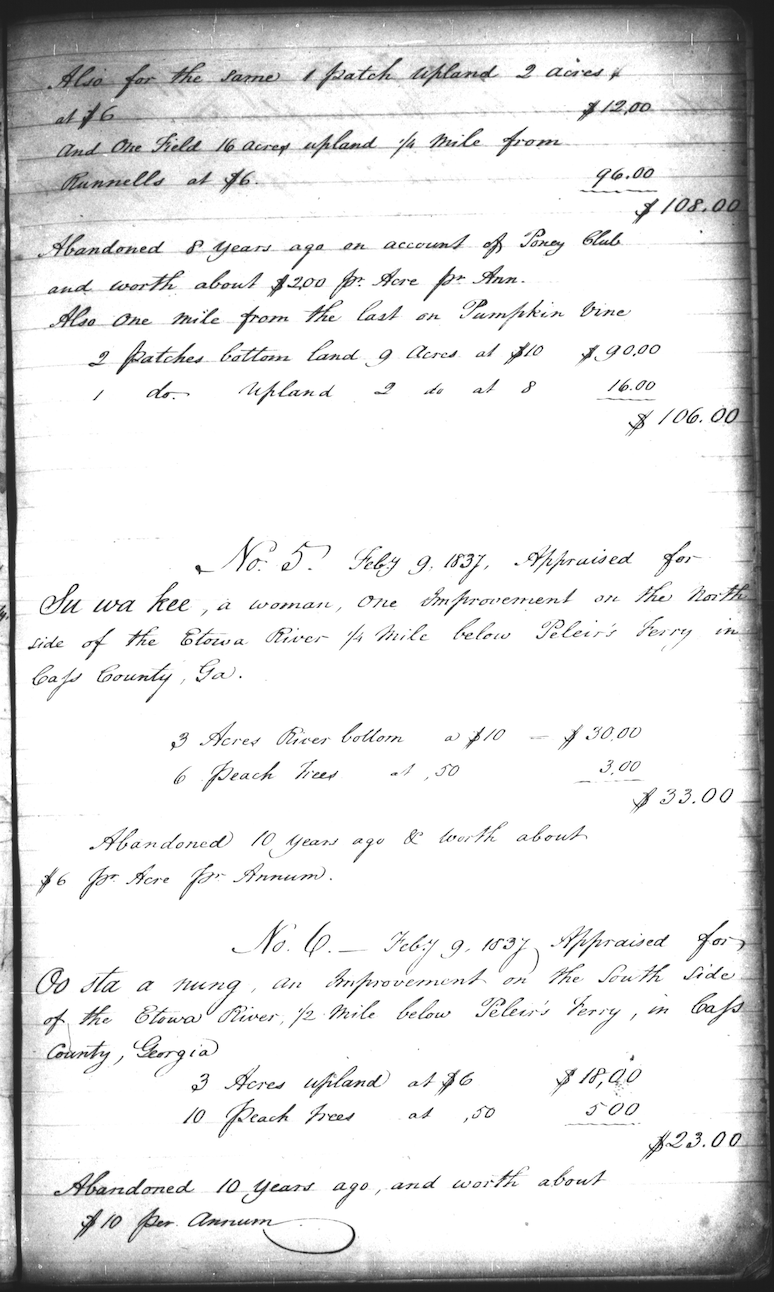 Also for the same 1 patch upland 2 acres
at $6 $12,00
and One Field 16 acres upland 1/4 Mile from
Runnells at $6. 96.00
$108.00
Abandoned 8 years ago on account of Poney Club
and worth about $2.00 pr. Acre pr Ann.
Also One Mile from the last on Pumpkin Vine
2 patches bottom land 9 Acres at $10 $90.00
1 do. Upland 2 do at 8 16.00
$106.00
No. 5. Feby 9. 1837, Appraised for
Su wa kee, a woman, One Improvement on the North
side of the Etowa River 1/4 Mile below Peleir's Ferry in
Cass County, Ga.
3 Acres River bottom a $10 — $30.00
6 Peach Trees at ,50 3.00
$33.00
Abandoned 10 years ago & worth about
$6 pr. Acre pr Annum.
No. 6. — Feby 9, 1837, Appraised for
Oo sta a nung, an Improvement on the South Side
of the Etowa River, 1/2 Mile below Peleir's Ferry, in Cass
County, Georgia
3 Acres upland at $6 $18,00
10 Peach Trees at ,50 5 00
$23.00
Abandoned 10 years ago, and worth about
$10 per. Annum